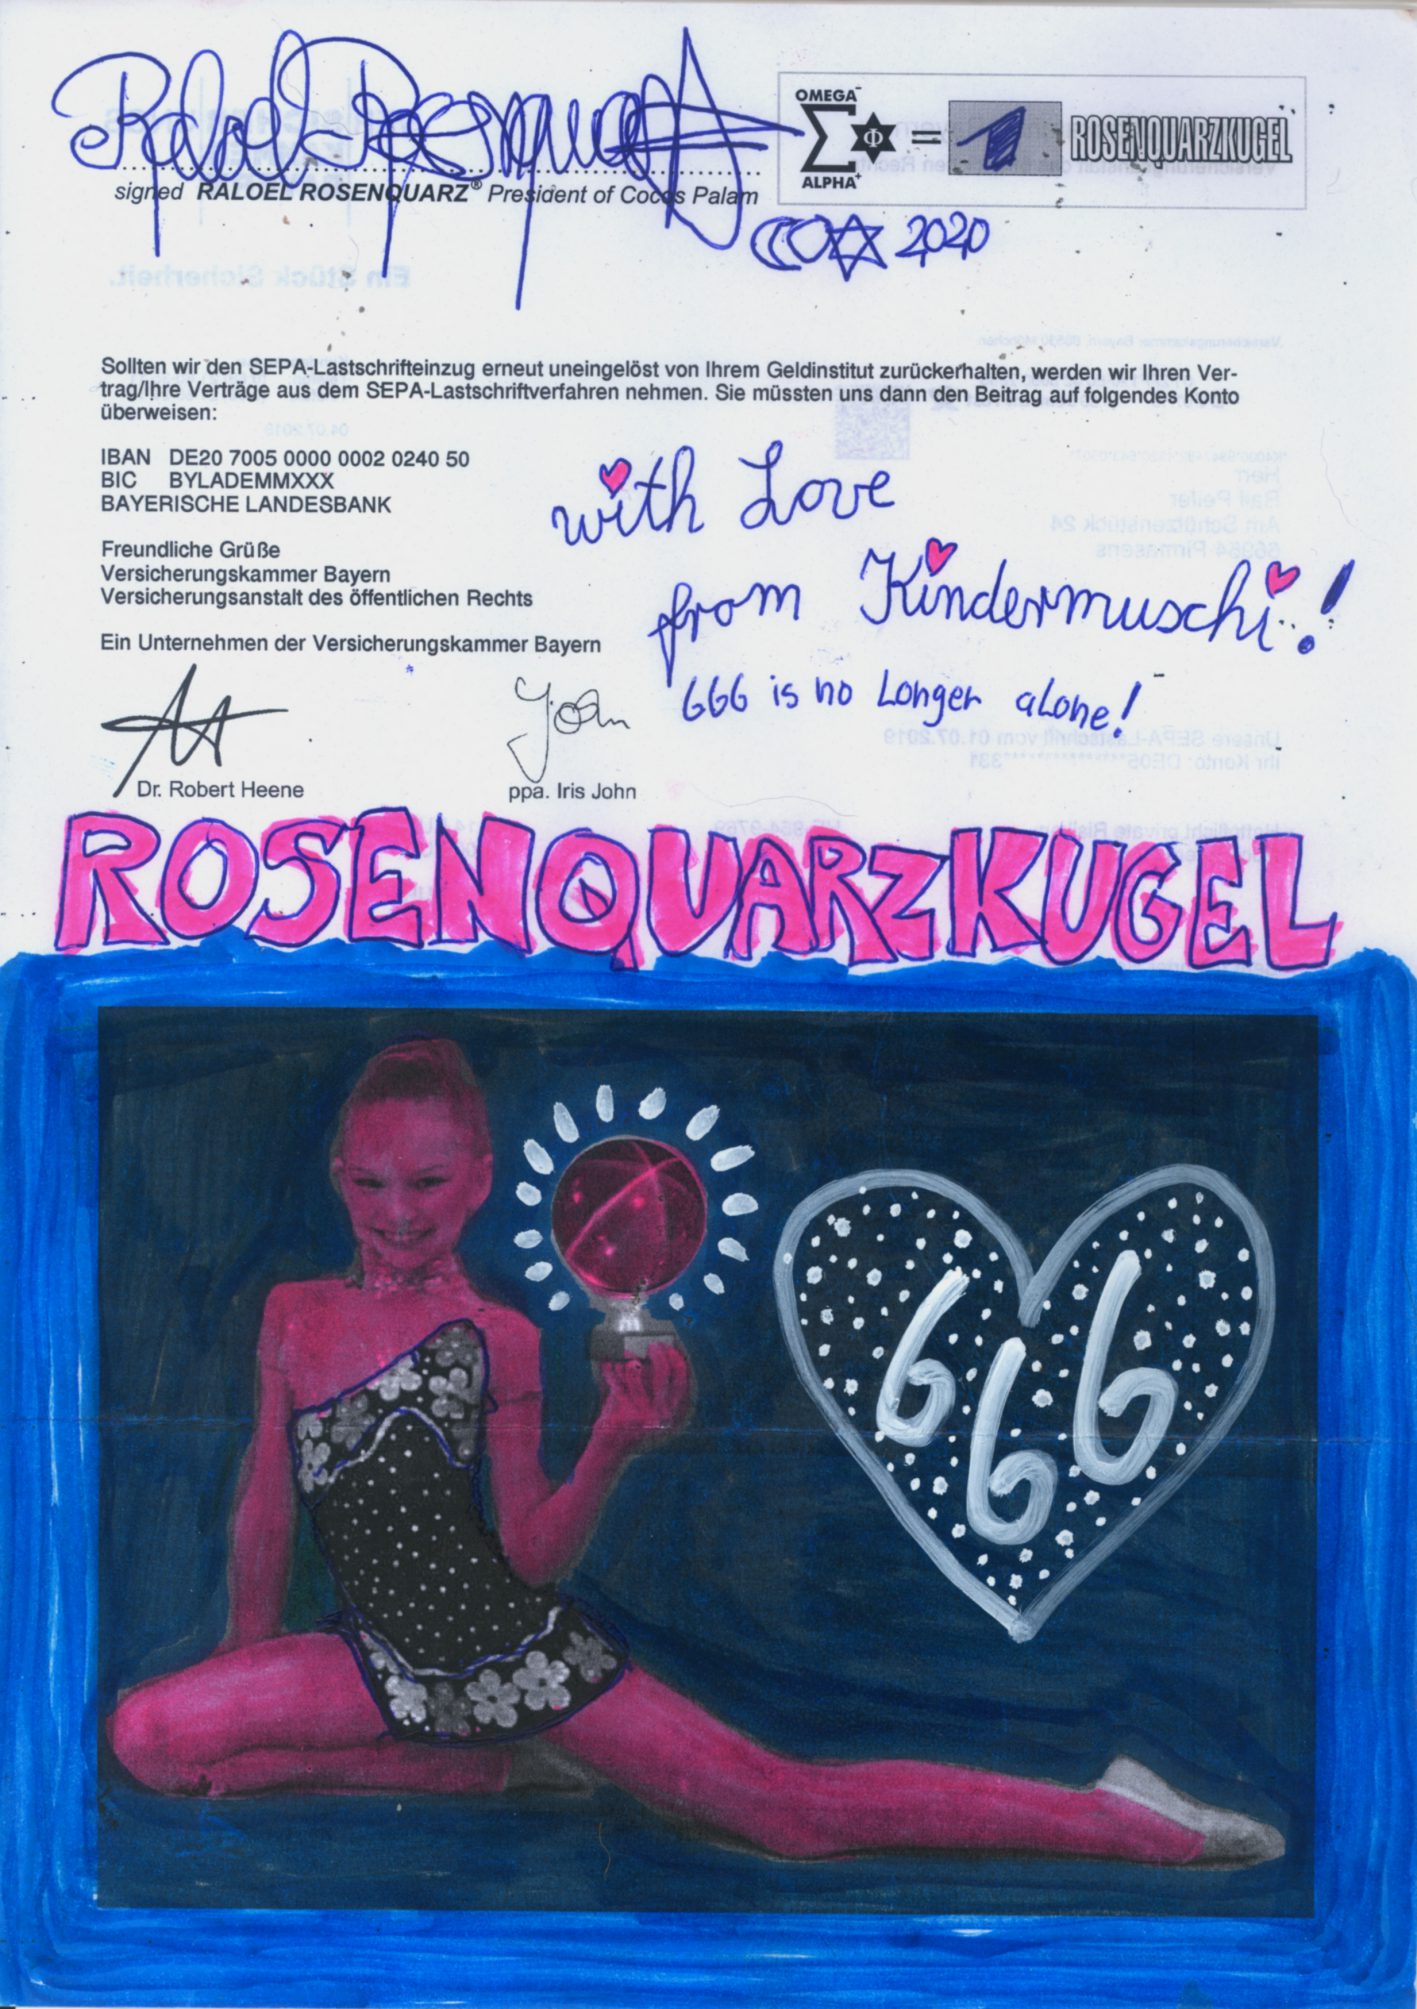 signed RALOEL ROSENQUARZ® President of Cocos Palam
OMEGA⁻
Σ Φ = 1 ROSENQUARZKUGEL
ALPHA⁺
2020
Sollten wir den SEPA-Lastschrifteinzug erneut uneingelöst von Ihrem Geldinstitut zurückerhalten, werden wir Ihren Ver-
trag/Ihre Verträge aus dem SEPA-Lastschriftverfahren nehmen. Sie müssten uns dann den Beitrag auf folgendes Konto
überweisen:
IBAN DE20 7005 0000 0002 0240 50
BIC BYLADEMMXXX
BAYERISCHE LANDESBANK
Freundliche Grüße
Versicherungskammer Bayern
Versicherungsanstalt des öffentlichen Rechts
Ein Unternehmen der Versicherungskammer Bayern
with Love
from Kindermuschi..!
666 is no Longer aLone!
Dr. Robert Heene
ppa. Iris John
ROSENQUARZKUGEL
666